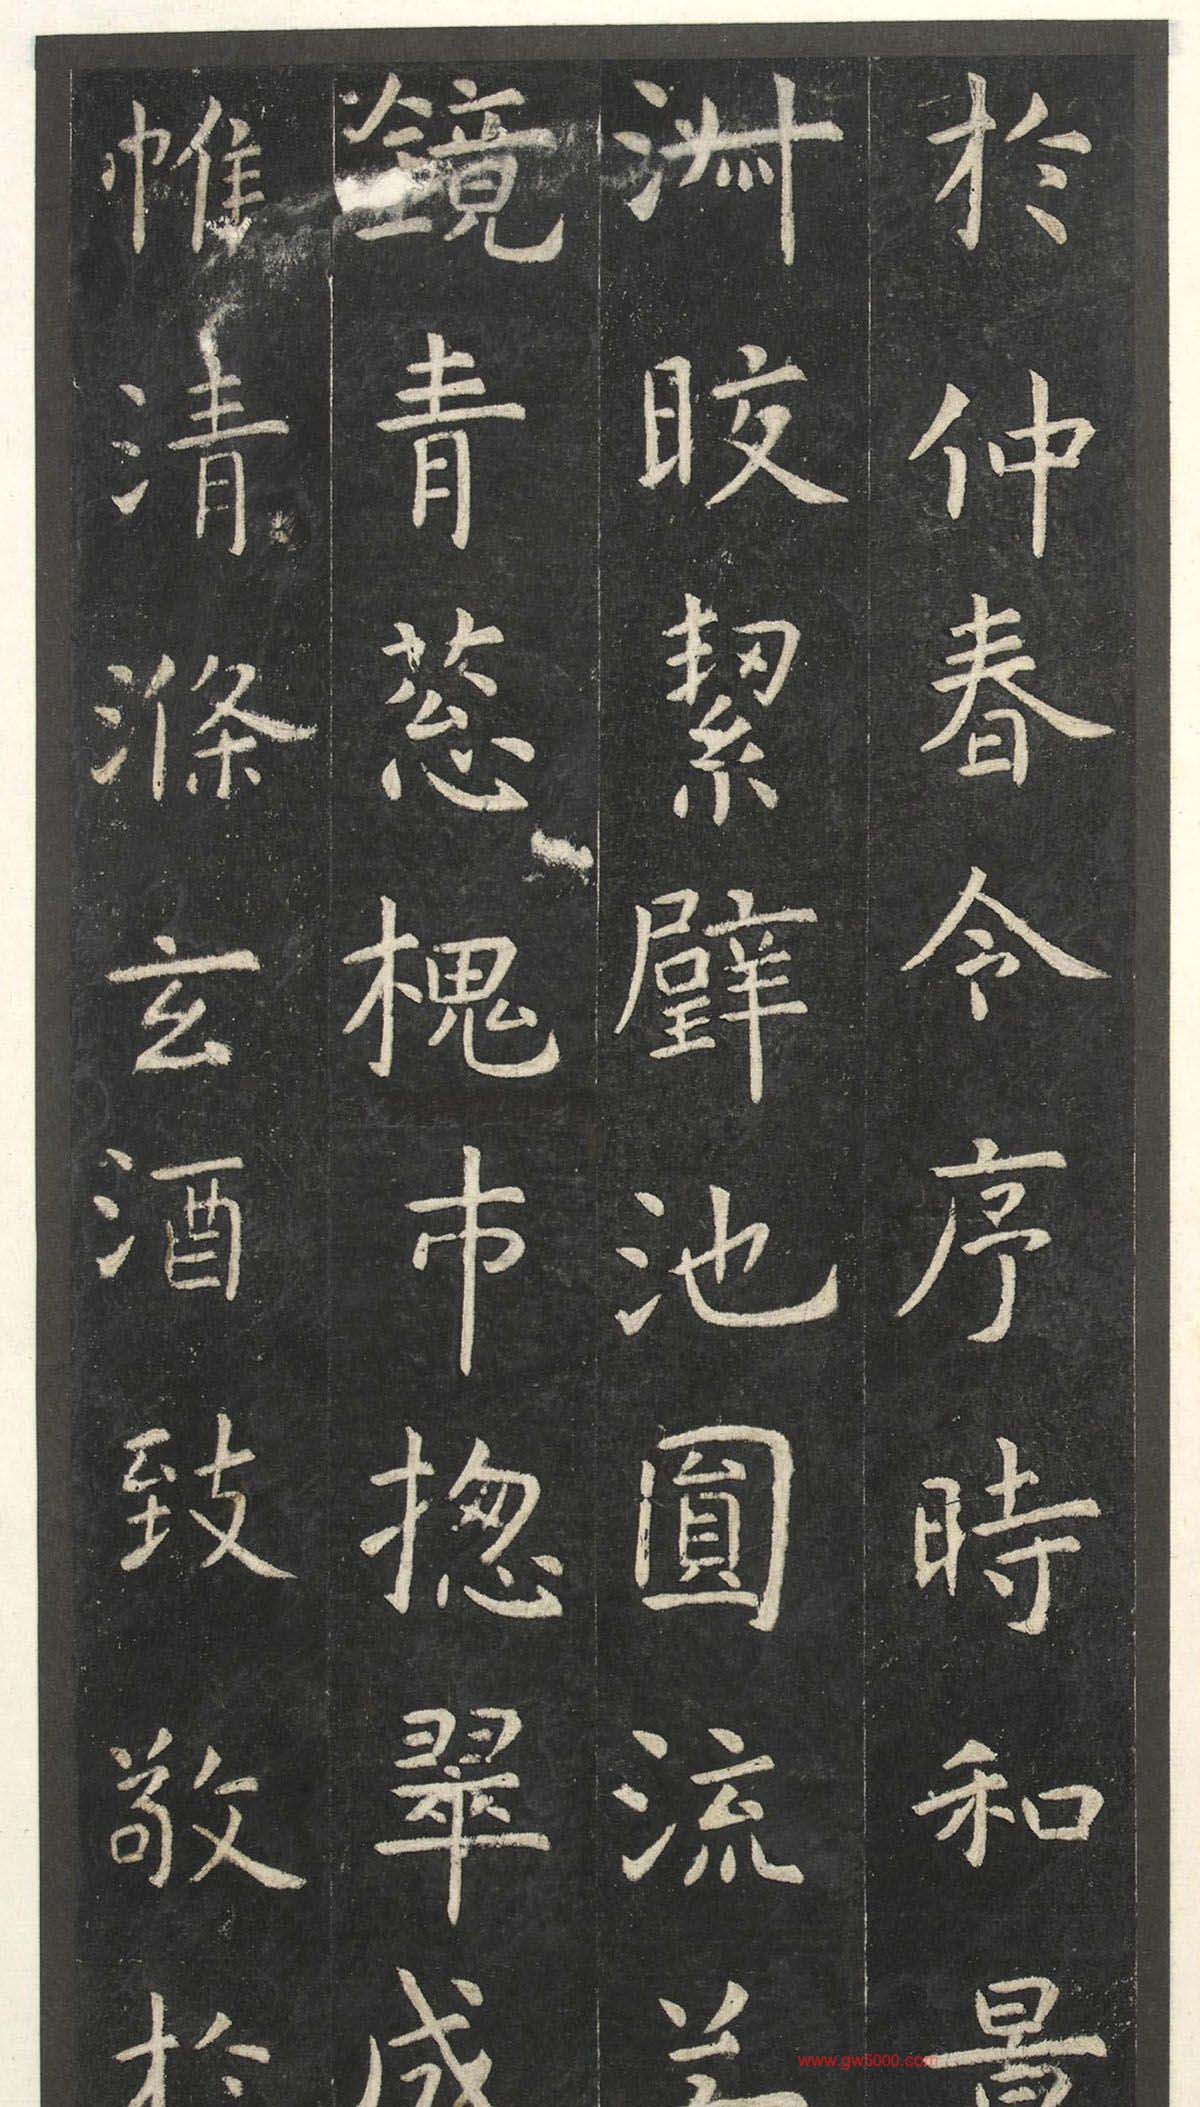 於仲春令序時和景
淑晈絜璧池圓流若
鏡青葱槐市揔翠成
帷清滌玄酒致敬於
www.gw5000.com